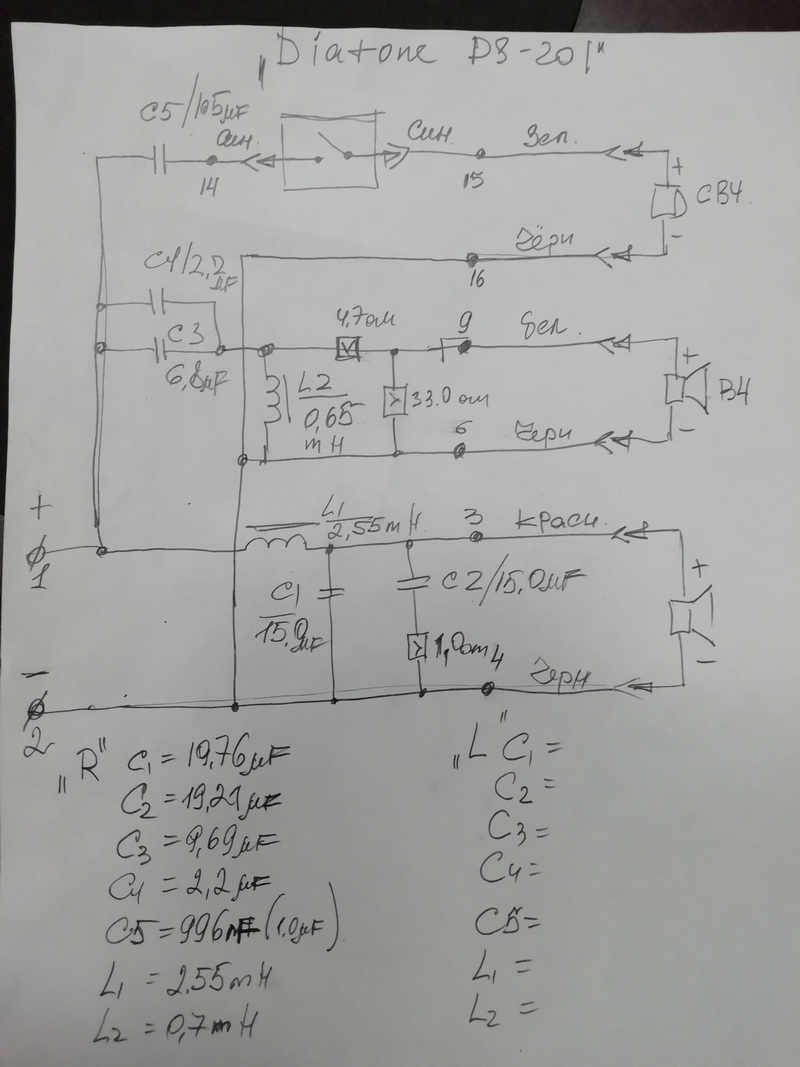 „Diatone DS-201"
C5/1.05µF
Син.
Син.
Зел.
14
15
+
СВЧ
-
Чёрн
16
C4/2,2
µF
C3
6,8µF
4,7ом
9
Бел.
+
L2
0,65
mH
33.0 ом
ВЧ
6
Черн
-
+
1
L1
2,55mH
3
Красн.
+
C1
15,0µF
C2/15,0µF
1,0от
4
Черн
-
-
2
„R" C1 = 19,76µF
C2 = 19,21µF
C3 = 9,69µF
C4 = 2,2µF
C5 = 996nF (1.0µF)
L1 = 2,55mH
L2 = 0,7mH
„L" C1 =
C2 =
C3 =
C4 =
C5 =
L1 =
L2 =